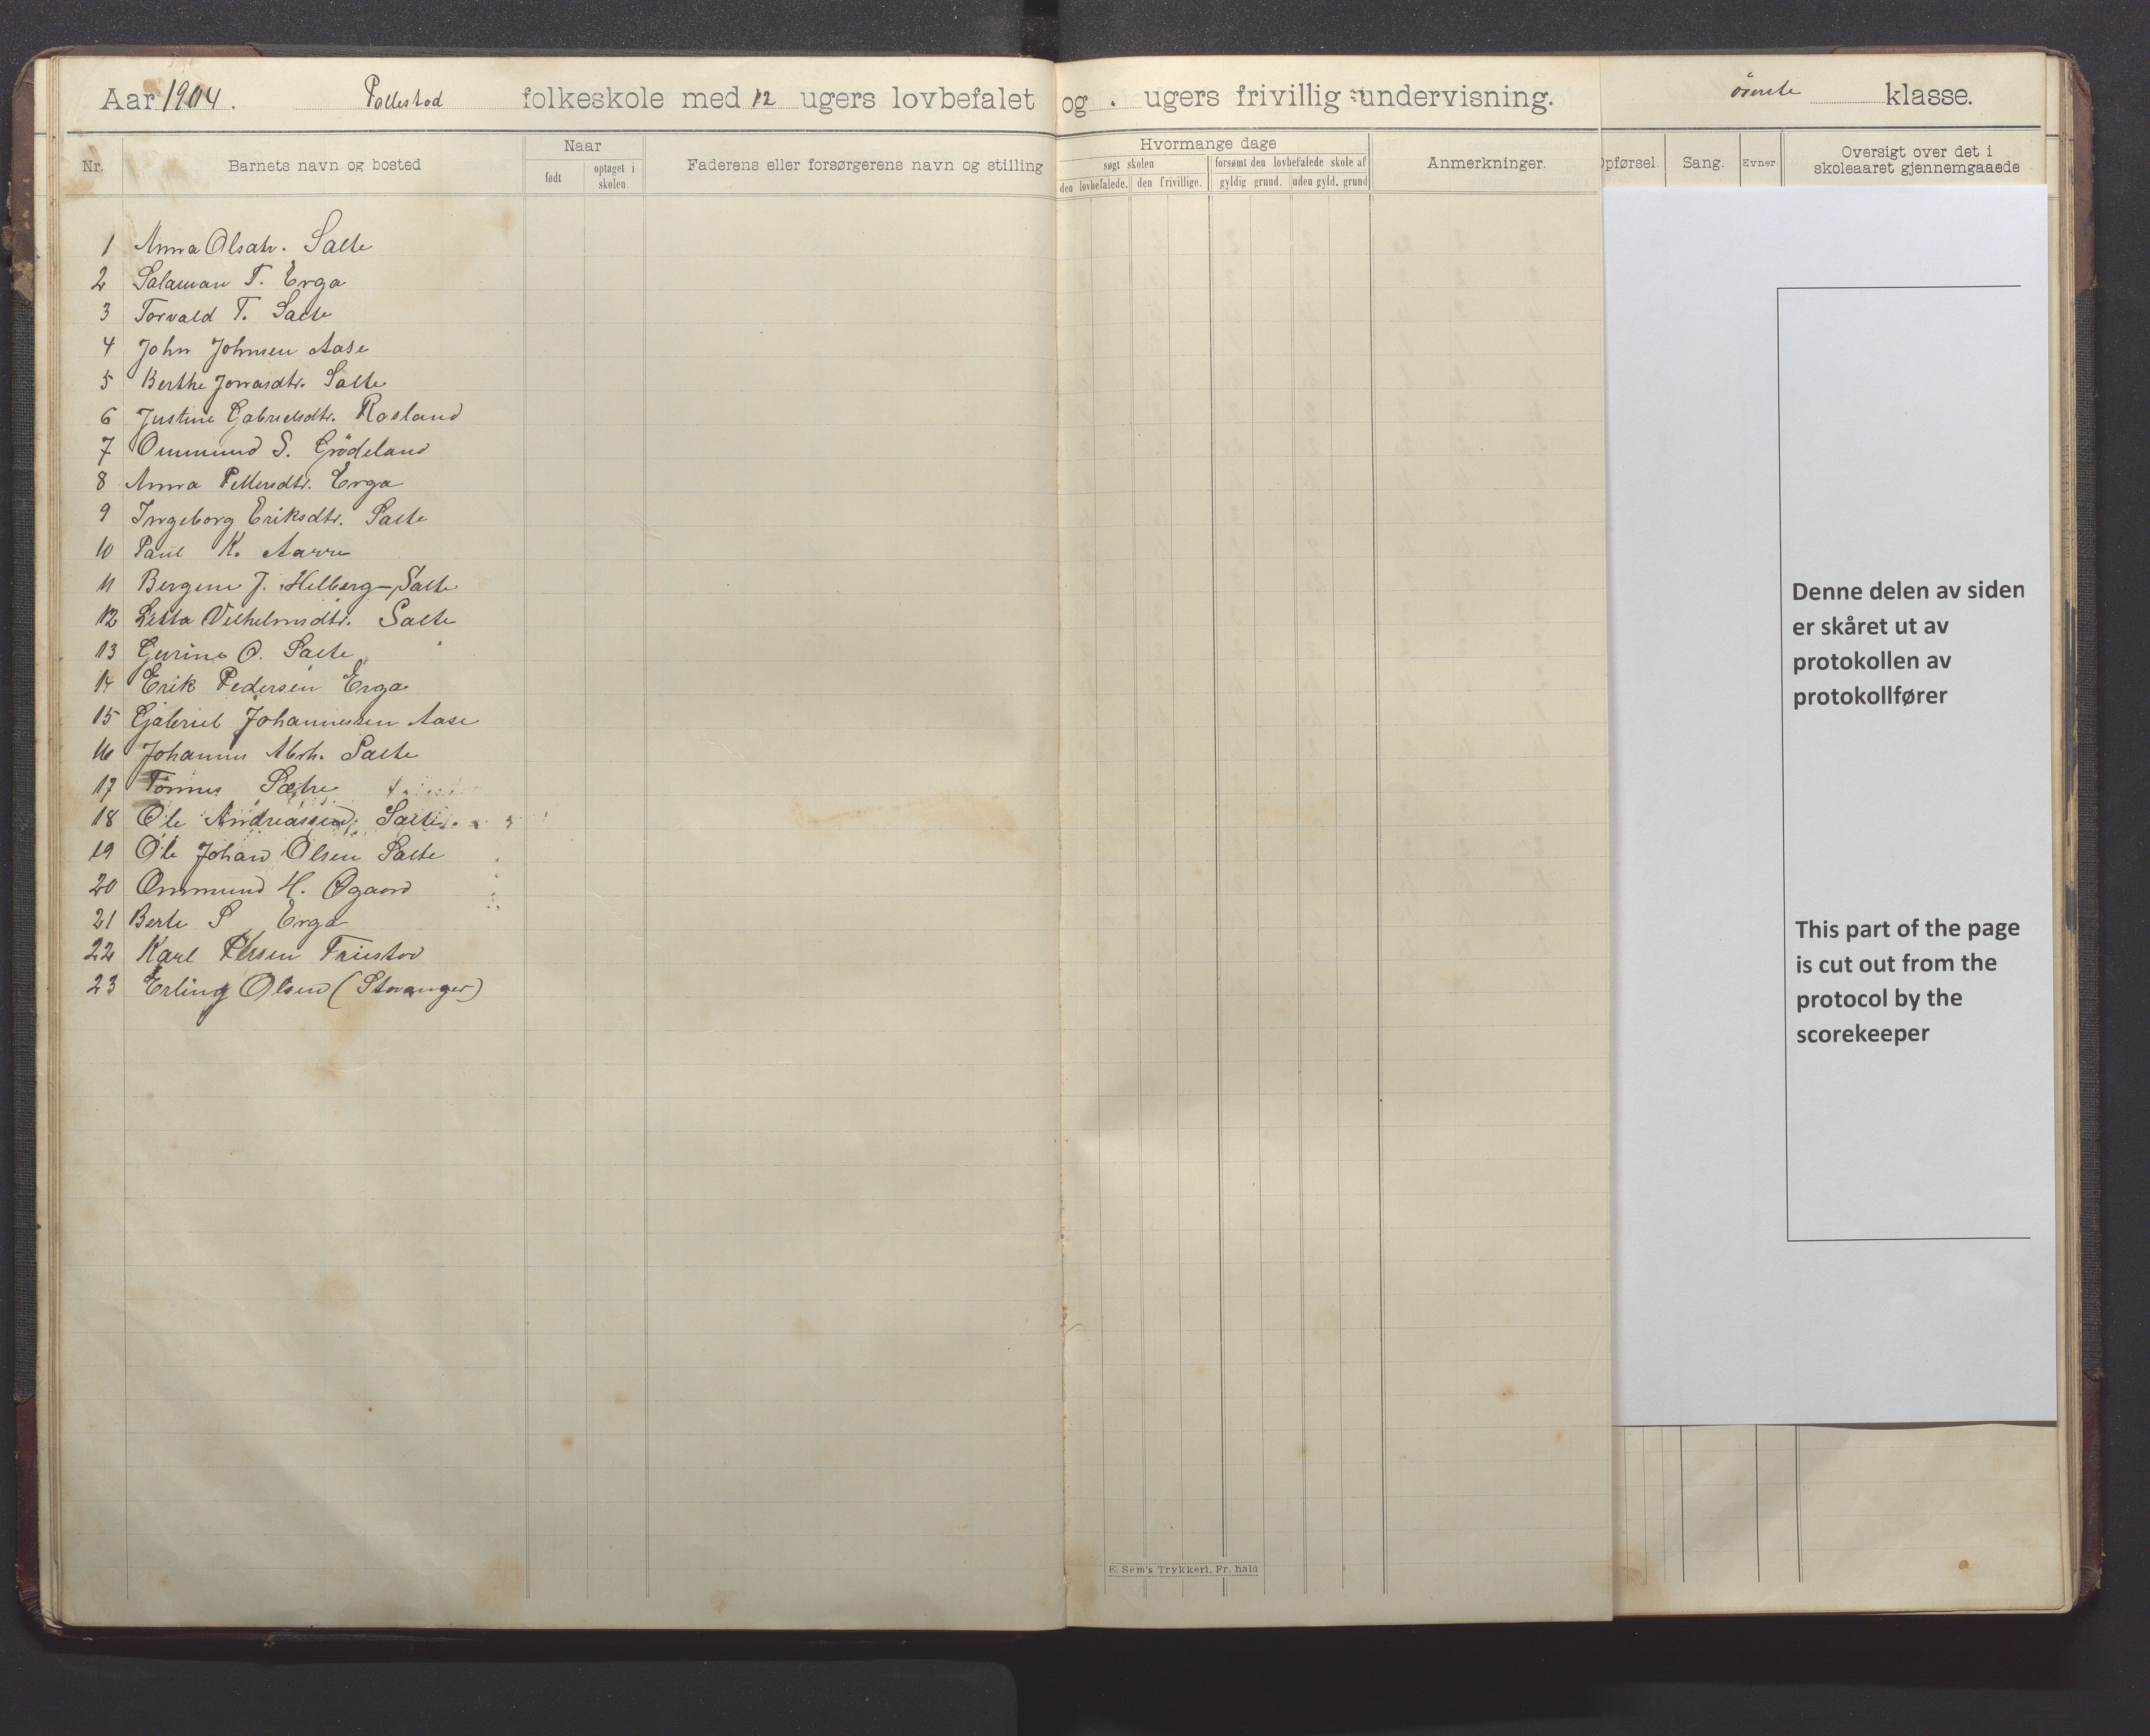 Aar 1904. Pollestad folkeskole med 12 ugers lovbefalet og . ugers frivillig undervisning. överste klasse.
Nr.
Barnets navn og bosted
Naar
født
optaget i skolen.
Faderens eller forsørgerens navn og stilling
Hvormange dage
søgt skolen
forsømt den lovbefalede skole af
den lovbefalede.
den frivillige.
gyldig grund.
uden gyld. grund
Anmerkninger.
Opførsel.
Sang.
Evner
Oversigt over det i
skoleaaret gjennemgaaede
1 Anna Olsdtr. Salte
2 Salaman T. Erga
3 Torvald T. Salte
4 John Johnsen Aase
5 Berthe Jonasdtr. Salte
6 Justine Gabrielsdtr. Rosland
7 Ommund S. Grödeland
8 Anna Pettersdtr. Erga
9 Ingeborg Eriksdtr. Salte
10 Paul K. Aarre
11 Bergine J. Helberg-Salte
12 Letta Vilhelmsdtr. Salte
13 Gurine O. Salte
14 Erik Pedersen Erga
15 Gabriel Johannessen Aase
16 Johannes Abrh. Salte
17 Tönnes Sætre
18 Ole Andreassen Salte
19 Ole Johan Olsen Salte
20 Ommund H. Øgaard
21 Berte S Erga
22 Karl Friestad
23 Erling Olsen (Stavanger)
Denne delen av siden
er skåret ut av
protokollen av
protokollfører
This part of the page
is cut out from the
protocol by the
scorekeeper
E. Sem's Trykkeri, Fr. hald